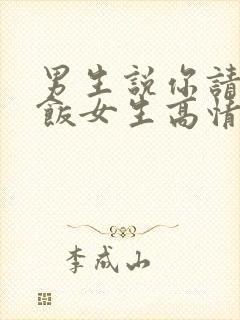 男生說你請
飯女生高情
李成山